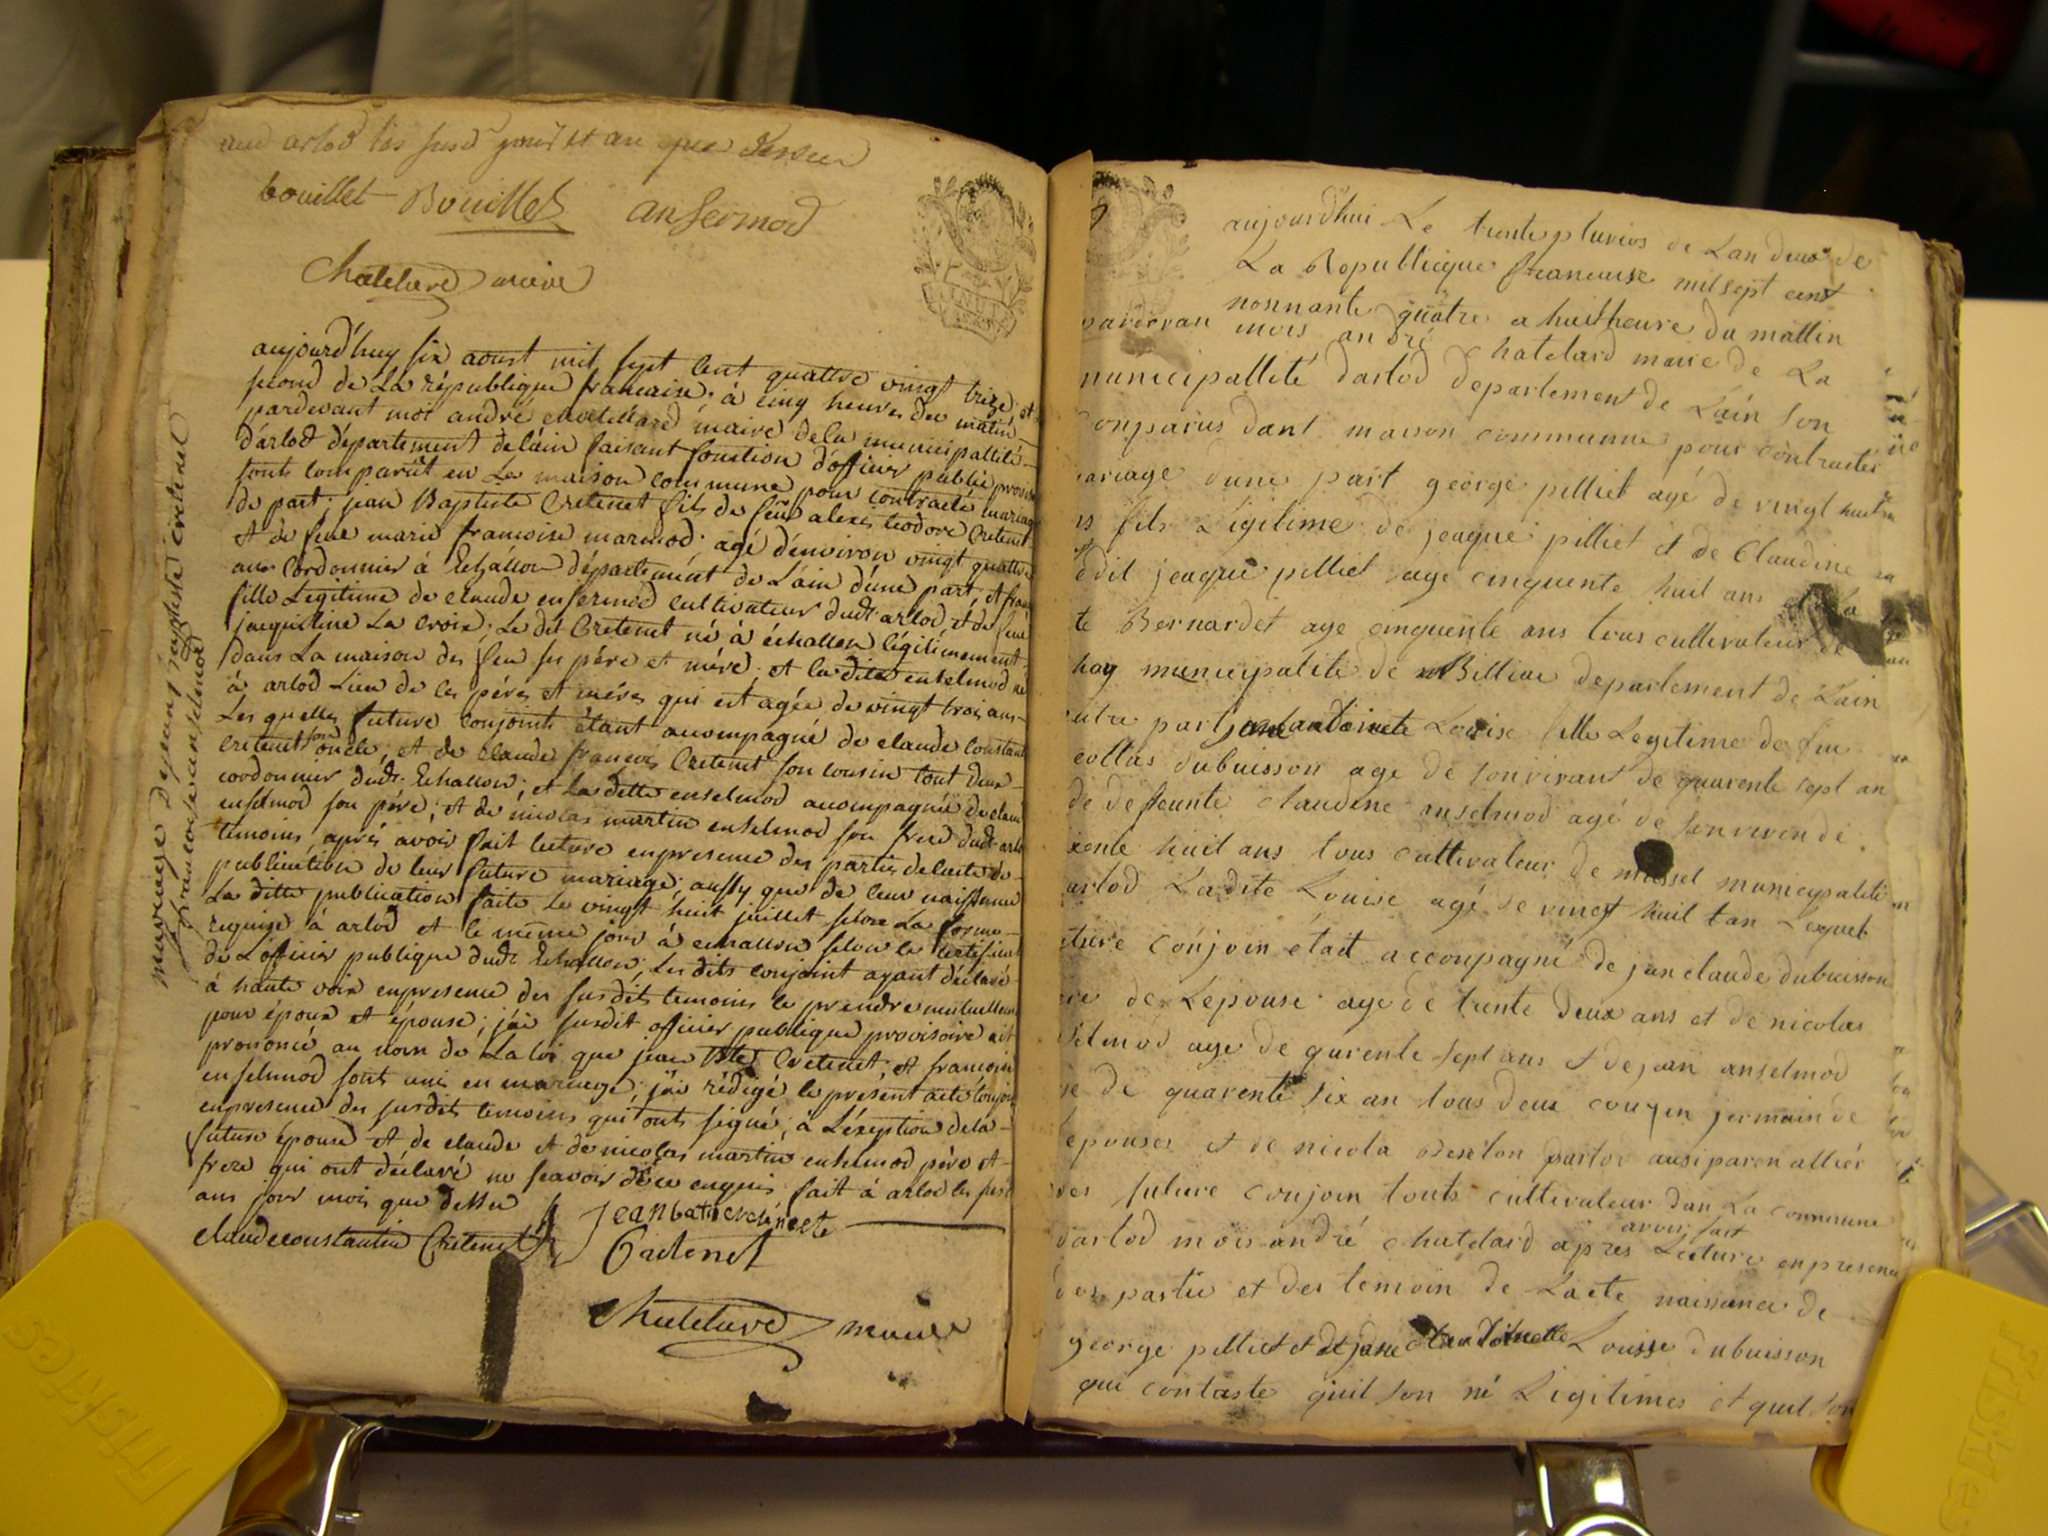 aud arlod les susd jour et an que dessus
bouillet Bouillet ansermod
Chatelard maire
mariage de jean baptiste cretenet
et francoise anselmod
aujourd'huy six aoust mil sept cent quattre vingt treize et
second de La république francaise, à cinq heures du matin
pardevant moi andré chattelard maire de la municipallité
d'arlod département de láin faisant fonction d'officier public provisoire
sonts comparût en La maison commune pour contracté mariage
de part, jean Baptiste Cretenet fils de feu alexis teodore Cretenet
et de feue marie francoise marmod, agé d'environ vingt quattre
ans Cordonnier à Echállon département de Láin d'une part, et fran
fille Legitime de claude ensermod cultivateur dudt arlod et de feue
jacqueline La Croix; Le dit Cretenet né à échallon légitimement
dans La maison des feu ses pére et mére, et la dite enselmod né
à arlod Lieu de ces péres et méres qui est agée de vingt trois ans
Les quelles future conjoints étant accompagné de claude Constant
cretenet son oncle; et de claude francois Cretenet son cousin tout deux
cordonnier dudt Echallon; et La ditte enselmod accompagnée de claude
enselmod son pére; et de nicolas martin enselmod son frere dudt arlod
temoins, aprés avoir fait lecture en presence des parties de l'acte de
publication de leur future mariage; aussy que de leur naissance
La ditte publication faite Le vingt huit juillet selon La forme
requise à arlod et le même jour à echallon selon le certificat
de L'officier publique dudt Echallon; Les dits conjoint ayant déclaré
à haute voix en presence des susdits temoins se prendre mutuellement
pour époux et épouse; j'ai susdit officier publique provisoire ait
prononcé au nom de La loi que jean Bte Cretenet, et francoise
enselmod sonts unis en mariage; j'ai rédigé le présent acte
en presence des susdits temoins qui onts signé, à L'éxeption de la
future épouse et de claude et de nicolas martin enselmod pére et
frere qui ont déclaré ne scavoir de ce enquis fait à arlod les susd
ans jour mois que dessus
claude constantin Cretenet jean batiste cretenete
Cretenet
Chatelard maire
aujourdhui Le trente pluvios de Lan deux de
La Republicque francaise mil sept cent
nonnante quatre a huit heure du mattin
pardevan mois andré Chatelard maire de La
municipallité darlod departement de Láin son
comparus dant maison communne pour contracter
mariage dune part george pilliet agé de vingt huit
ans fils Légitime de jeaque pilliet et de Claudine
ledit jeaque pilliet age cinquente huit ans La
te Bernardet age cinquente ans tous cultivateur de
hay municipalité de Billiac departement de Lain
autre part jane antoinete Louise fille Legitime de feu
collas dubuisson age de son vivant de quarente sept an
de defeunte claudine anselmod agé de son viven de
xente huit ans tous cultivateur de mussel municipalité
arlod Ladite Louise agé de vingt huit tan Lesquel
future conjoin était accoupagné de jan claude dubuisson
de Lepouse age de trente deux ans et de nicolas
selmod age de qurente sept ans et de jean anselmod
de quarente six an tous deux couzin jermain de
epouse et de nicola darlod ausi paren alliér
des future conjoin touts cultivateur dan La commune
darlod mois andré Chatelard apres avoir fait Lecture en presence
des partie et des temoin de Lacte naissance de
george pilliet et de jane antoinette Louisse dubuisson
qui contaste quil son né Légitimes et quil son